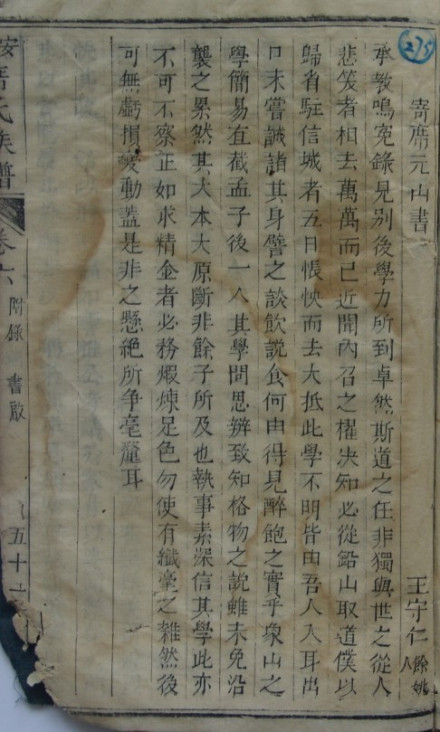 275
寄席元山書
王守仁餘姚人
承教鳴冤錄見別後學力所到卓然斯道之任非獨與世之從人
悲笑者相去萬萬而已近聞內召之擢决知必從鉛山取道僕以
歸省駐信城者五日悵怏而去大抵此學不明皆由吾人入耳出
口未嘗誠諸其身譬之談飲說食何由得見醉飽之實乎象山之
學簡易直截孟子後一人其學問思辨致知格物之說雖未免沿
襲之累然其大本大原斷非餘子所及也執事素深信其學此亦
不可不察正如求精金者必務煆煉足色勿使有纖毫之雜然後
可無虧損變動蓋是非之懸絕所爭毫釐耳
氏族譜
卷六
附錄
書啟
五十